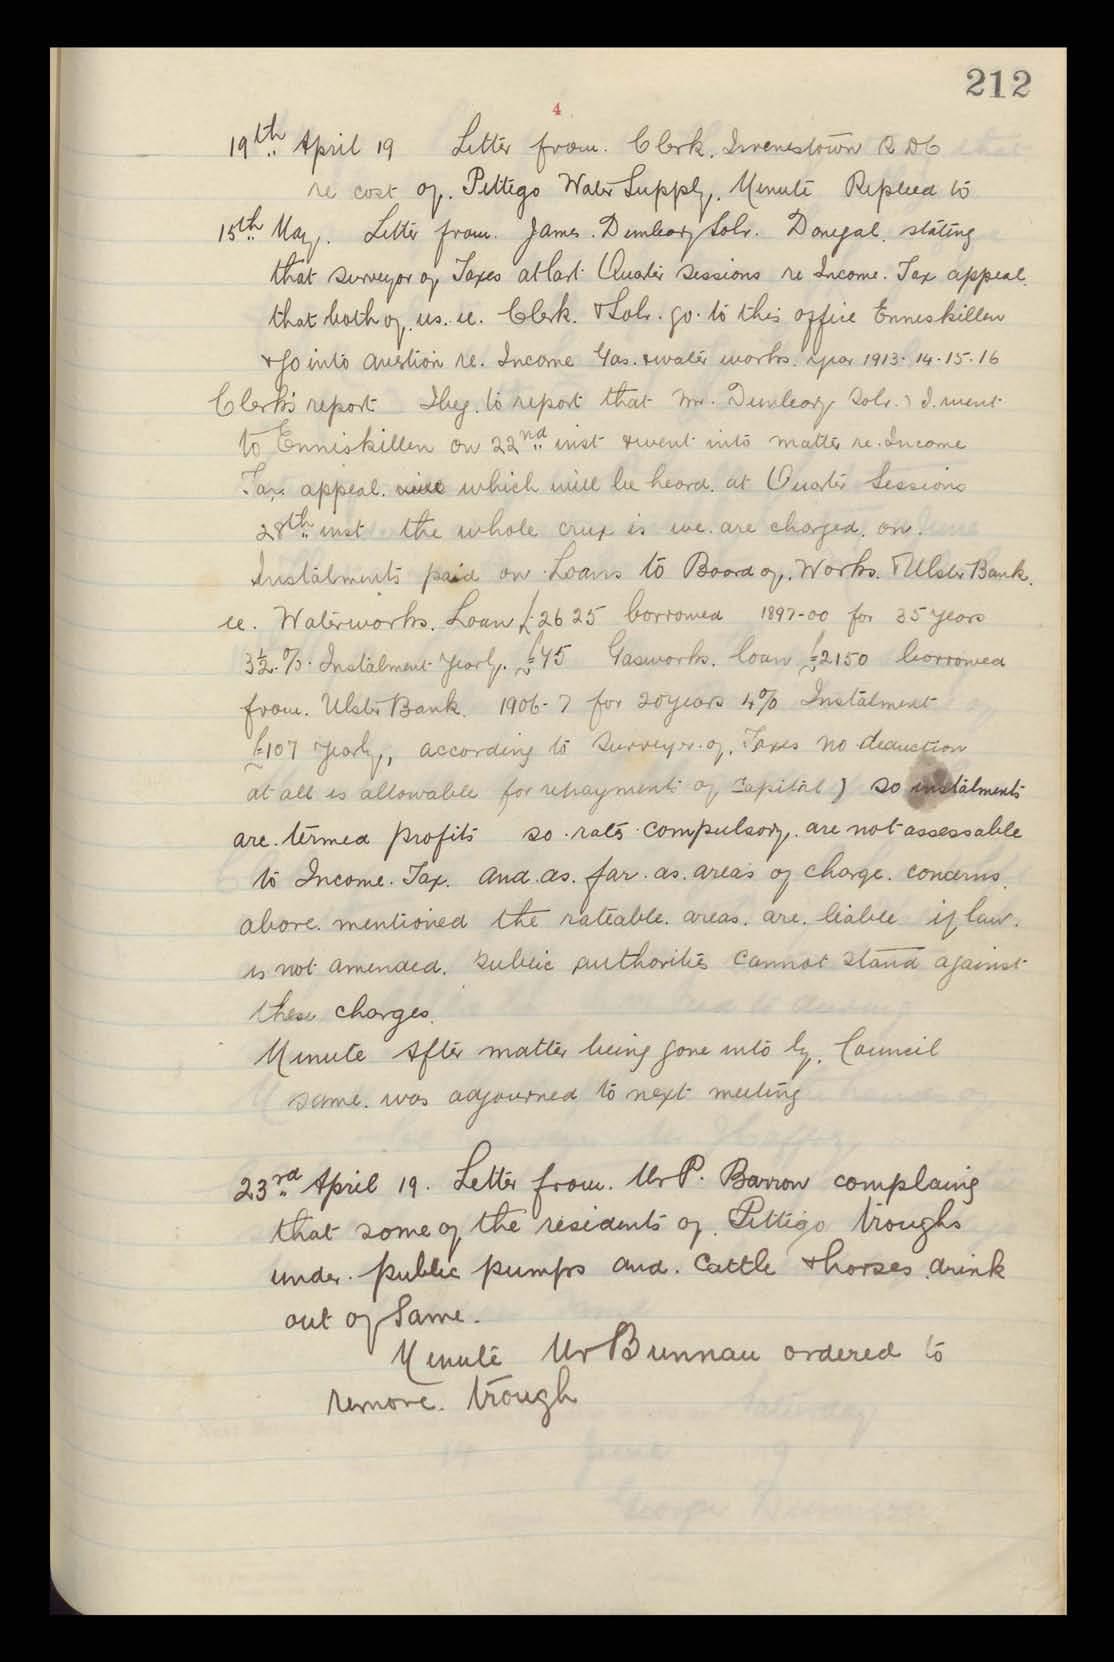 212
4
19th April 19 Letter from. Clerk. Irvinestown R D C
re cost of. Pettigo Water Supply. Minute Replied to
15th May. Letter from. James. Dunleavy Solr. Donegal. stating
that surveyor of Taxes at last Quarter sessions re Income. Tax appeal.
that both of. us. ie. Clerk. & Solr. go. to this office Enneskillen
& go into question re. Income Gas. & water works. year 1913. 14. 15. 16
Clerk's report I beg. to report that Mr. Dunleavy Solr. & I. went
to Enniskillen on 22nd inst & went into matter re. Income
Tax appeal. will which will be heard. at Quarter Sessions
28th inst the whole crux is we. are charged. on.
Instalments paid on Loans to Board of. Works. & Ulster Bank.
ie. Waterworks. Loan £2625 borrowed 1897-00 for 35 years
3½ %. Instalment yearly. £45 Gasworks. loan £2150 borrowed
from. Ulster Bank. 1906-7 for 20 years 4% Instalment
£107 yearly, according to Surveyor. of. Taxes no deduction
at all is allowable for repayments of capital) so instalments
are. termed profits so. rates compulsory. are not assessable
to Income. Tax. and. as. far. as. areas of charge. concerns.
above. mentioned the rateable. areas. are. liable if law.
is not amended. public authorities cannot stand against
these charges.
Minute After matter being gone into by. Council
same. was adjourned to next meeting
23rd April 19. Letter from. Mr P. Barron complaing
that some of the residents of. Pettigo troughs
under. public pumps and. cattle & horses. drink
out of Same.
Minute Mr Bunnau ordered to
remove. trough